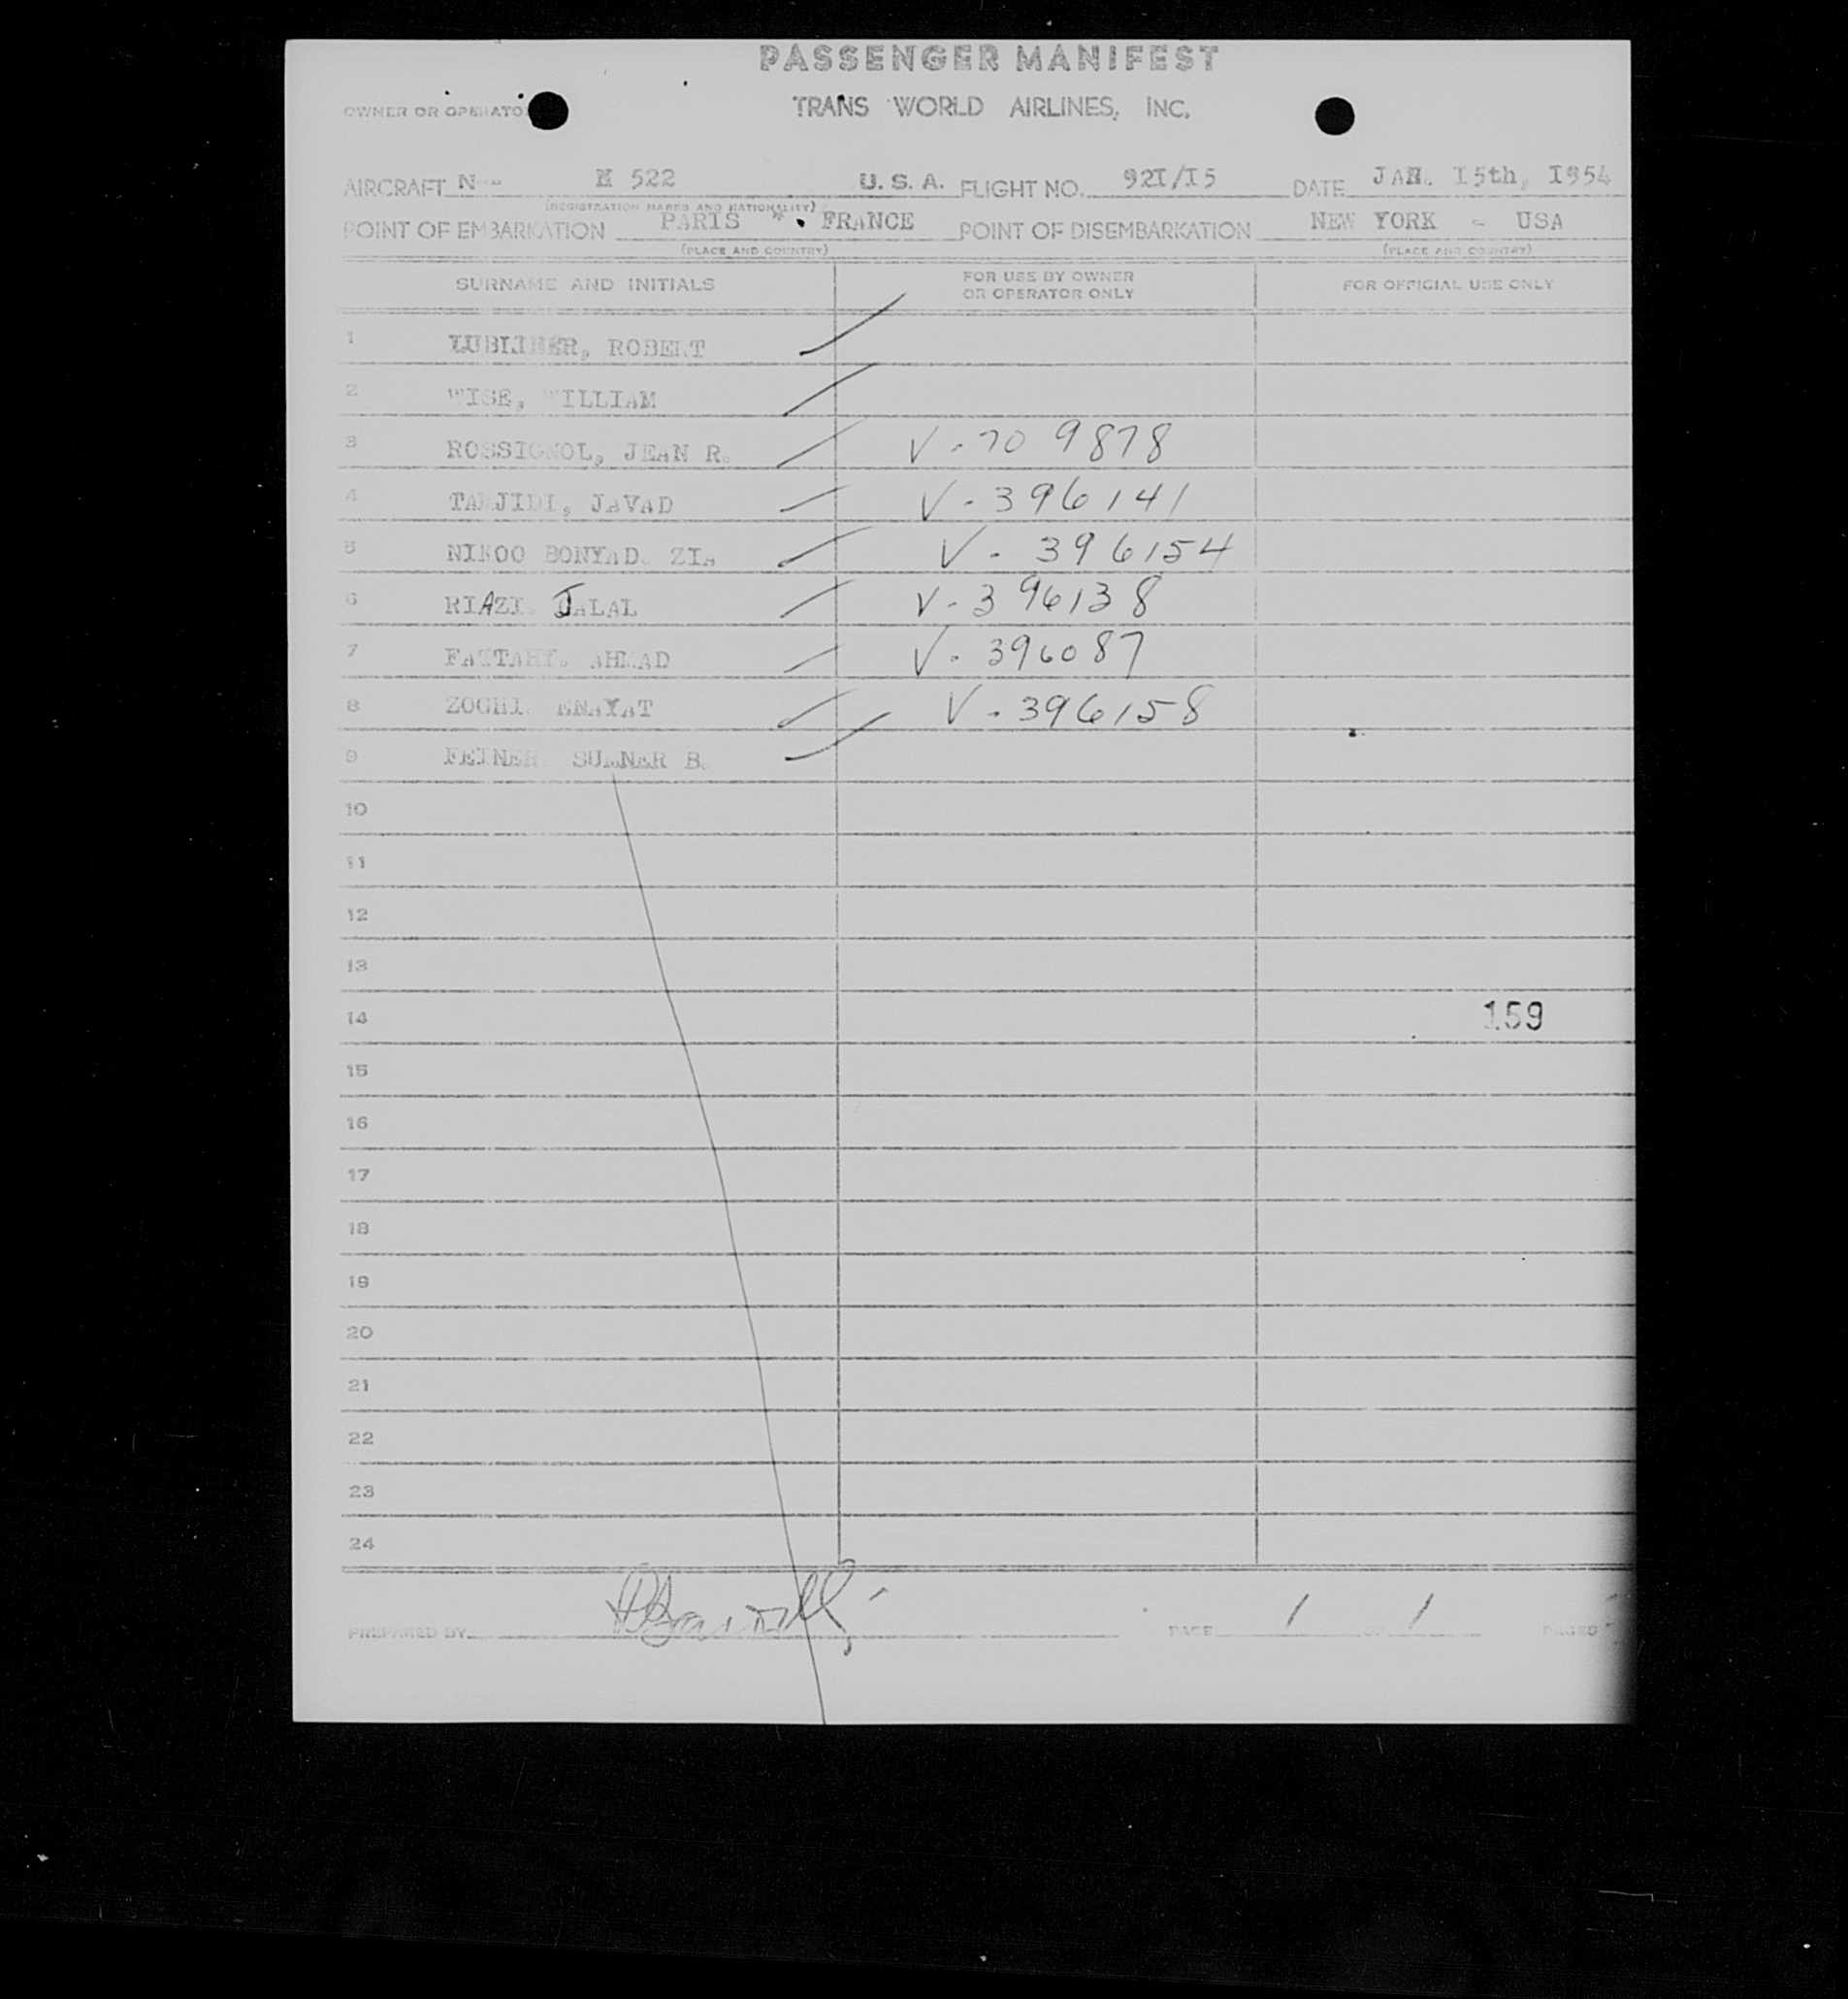 PASSENGER MANIFEST
OWNER OR OPERATO TRANS WORLD AIRLINES, INC.
AIRCRAFT N - 522 U. S. A. FLIGHT NO. 92I/I5 DATE JAN. I5th, I954
(REGISTRATION MARKS AND NATIONALITY)
POINT OF EMBARKATION PARIS FRANCE POINT OF DISEMBARKATION NEW YORK - USA
(PLACE AND COUNTRY) (PLACE AND COUNTRY)
SURNAME AND INITIALS FOR USE BY OWNER OR OPERATOR ONLY FOR OFFICIAL USE ONLY
1 LUBLINER, ROBERT
2 WISE, WILLIAM
3 ROSSIGNOL, JEAN R. V-709878
4 JAVAD V-396141
5 BONYAD ZIA V-396154
6 RIAZI JALAL V-396138
7 FATTAHY. AHMAD V-396087
8 ZOGHI ENAYAT V-396158
9 FEINER SUMNER B.
10
11
12
13
14 159
15
16
17
18
19
20
21
22
23
24
PREPARED BY PAGE 1 OF 1 PAGES